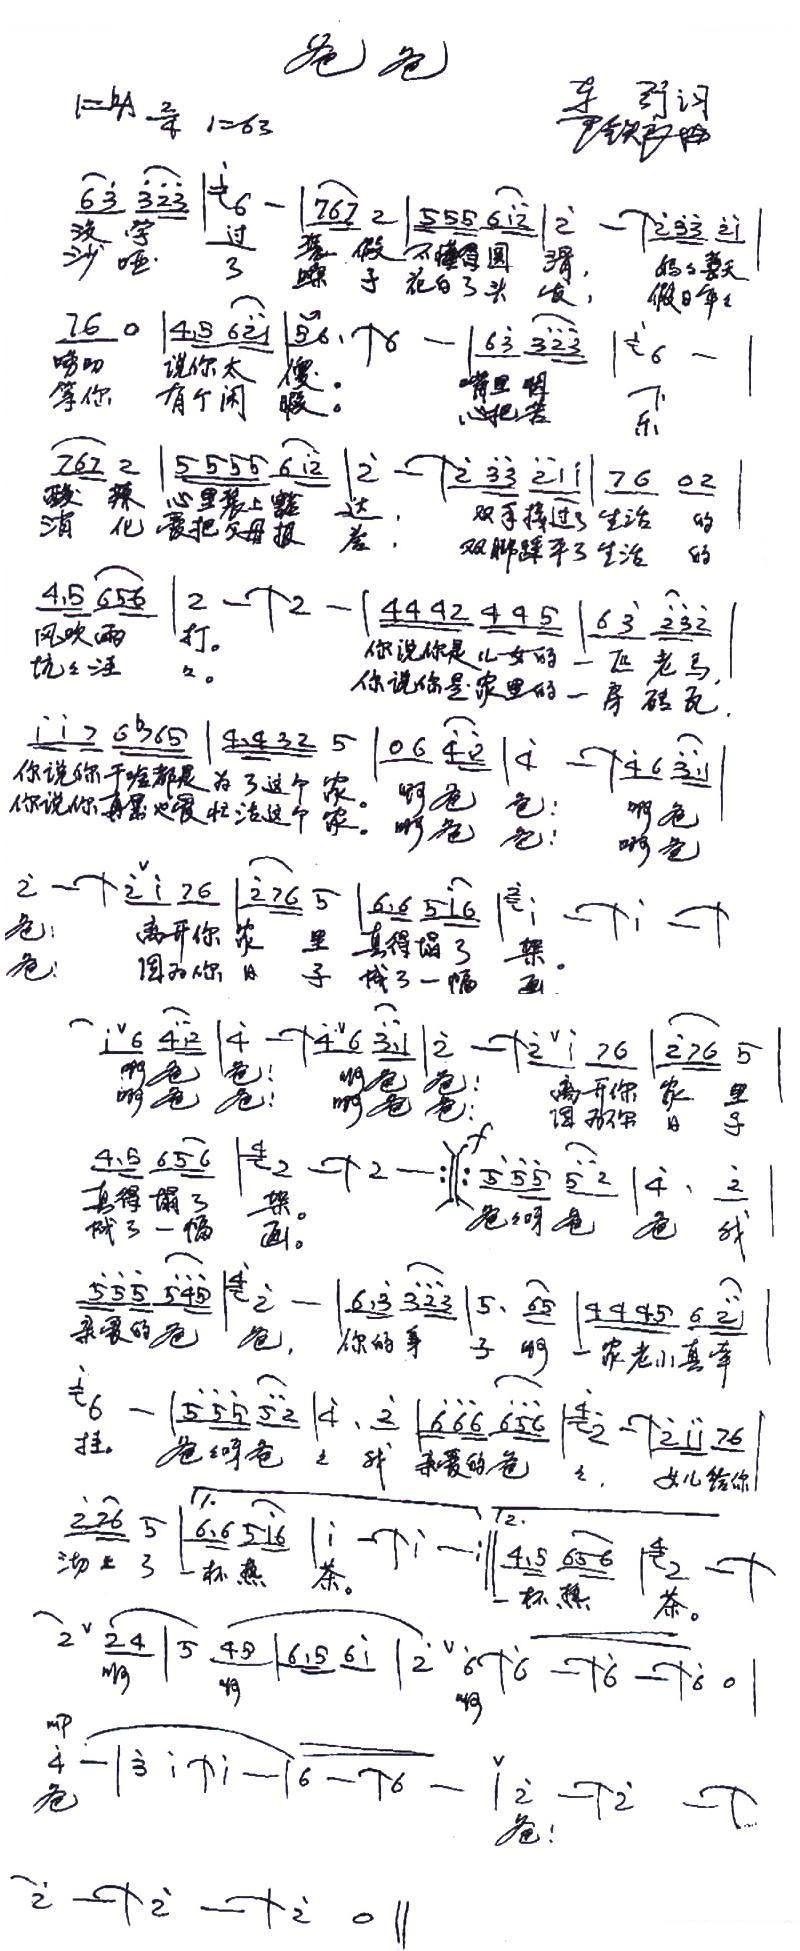 爸爸
1=bA 2/4 1=63
车 词
曲
6 3 3 2 3 | 6 — | 7 6 7 2 | 5 5 5 6 1 2 | 2 — | 2 3 3 2 1 |
没 学 过 装 假 不懂得圆 滑, 妈妈整天
沙 哑 了 嗓 子 花白了头 发, 假日年年
7 6 0 | 4. 5 6 2 1 | 5 6. | 6 — | 6 3 3 2 3 | 6 — |
唠叨 说你太 傻。 嘴里 咽 下
等你 有个闲 暇。 心把苦 乐
7 6 7 2 | 5 5 5 5 6 1 2 | 2 — | 2 3 3 2 1 1 | 7 6 0 2 |
酸 辣 心里装上豁 达, 双手接过了 生活 的
消 化 爱把父母报 答, 双脚踩平了 生活 的
4. 5 6 5 6 | 2 — | 2 — | 4 4 4 2 4 4 5 | 6 3 2 3 2 |
风吹雨 打。 你说你是儿女的 一匹老马,
坑坑洼 洼。 你说你是家里的 一房砖瓦,
1 1 7 6 b7 6 5 | 4. 4 3 2 5 | 0 6 4 2 | 4 — | 4 6 3. 1 |
你说你干啥都是 为了这个 家。 啊爸 爸! 啊爸
你说你再累也要 忙活这个 家。 啊爸 爸! 啊爸
2 — | 2 1 7 6 | 2 7 6 5 | 6. 6 5 1 6 | 1 — | 1 — |
爸! 离开你 家 里 真得塌了 架。
爸! 因为你 日 子 成了一幅 画
1 6 4. 2 | 4 — | 4 6 3. 1 | 2 — | 2 1 7 6 | 2 7 6 5 |
啊爸 爸! 啊爸 爸! 离开你 家 里
啊爸 爸! 啊爸 爸! 因为你 日 子
4. 5 6 5 6 | 2 — | 2 — :‖: f 5 5 5 5 2 | 4. 2 |
真得塌了 架。 爸爸呀爸 爸 我
成了一幅 画。
5 5 5 5 4 5 | 2 — | 6. 3 3 2 3 | 5. 6 5 | 4 4 4 5 6 2 1 |
亲爱的爸 爸, 你的身 子 啊 一家老小真牵
6 — | 5 5 5 5 2 | 4. 2 | 6 6 6 6 5 6 | 2 — | 2 1 1 7 6 |
挂。 爸爸呀爸 爸 我 亲爱的爸 爸, 女儿给你
2. 7 6 5 | 1. 6. 6 5 1 6 | 1 — | 1 — :‖ 2. 4. 5 6 5 6 | 2 — |
沏上了 一杯热 茶。 一杯热 茶。
2 2 4 | 5 4 5 | 6. 5 6 1 | 2 6 | 6 — | 6 — | 6 0 |
啊 啊 啊
mp
4 — | 3 1 | 1 — | 6 — | 6 — | 2 — | 2 — |
爸 爸!
2 — | 2 — | 2 0 ‖